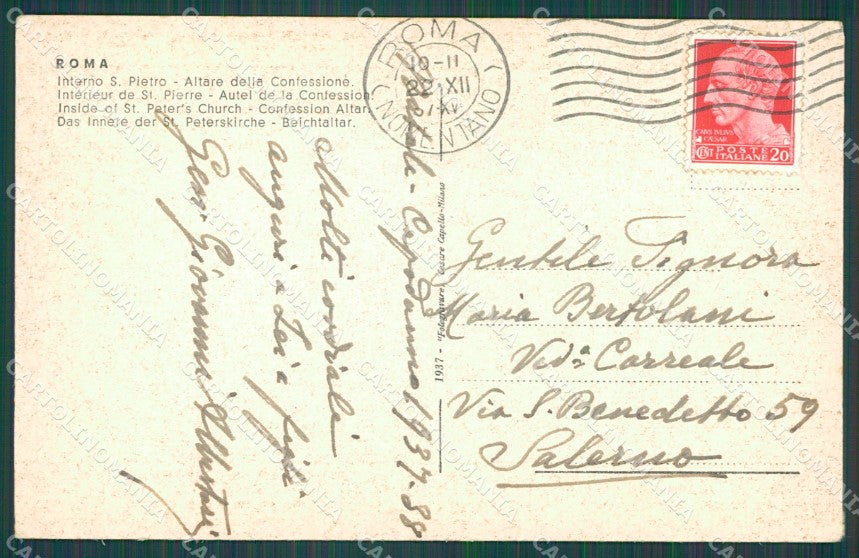 ROMA
Interno S. Pietro - Altare della Confessione.
Intérieur de St. Pierre - Autel de la Confession.
Inside of St. Peter's Church - Confession Altar.
Das Innere der St. Peterskirche - Beichtaltar.
ROMA
NOMENTANO
10-11
22 XII
CAIVS IVLIVS
CAESAR
POSTE
CENT ITALIANE 20
Natale - Capodanno 1937-38
Molti cordiali
auguri a Lei e figli
Gen. Giovanni
1937 - "Fotogravure" Cesare Capello-Milano
Gentile Signora
Maria Bertolani
Ved. Correale
Via S. Benedetto 59
Salerno
CARTOLINOMANIA